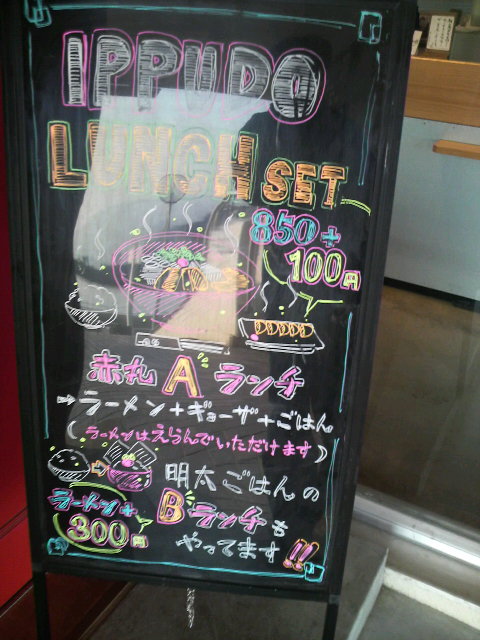 IPPUDO
LUNCH SET
850+
100円
赤丸Aランチ
→ラーメン+ギョーザ+ごはん
(ラーメンはえらんでいただけます)
明太ごはんの
Bランチも
やってます!!
ラーメン+
300円